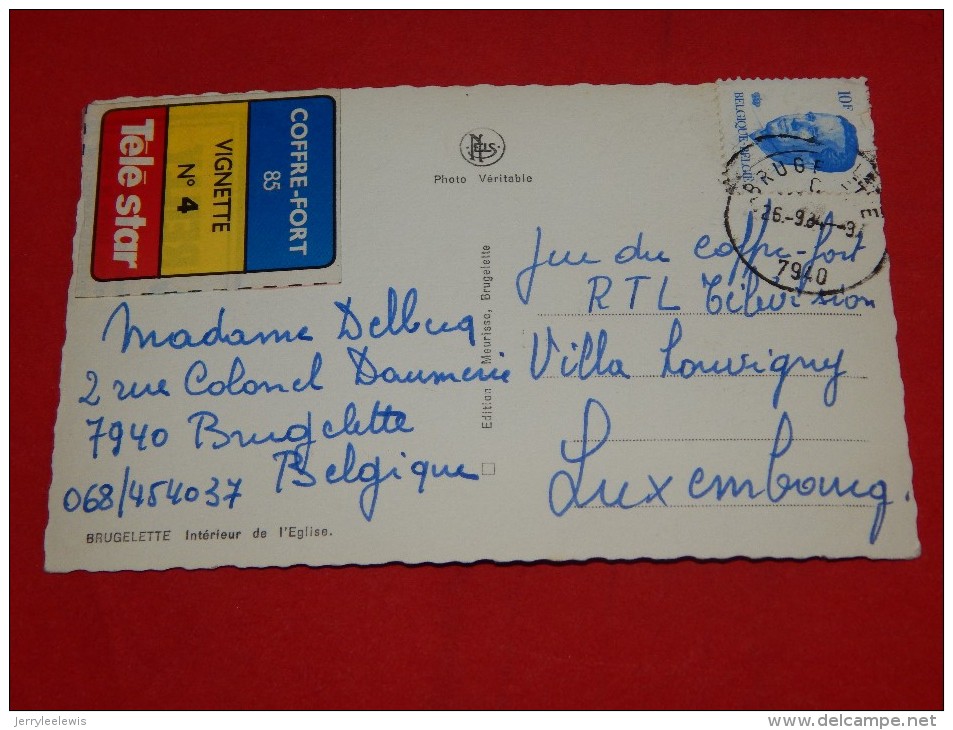 COFFRE-FORT
85
VIGNETTE
N° 4
Télé star
NELS
Photo Véritable
10F
BELGIQUE-BELGIË
26.-9.84
7940
Madame Delbecq
2 rue Colonel Daumerie
7940 Brugelette
Belgique
068/454037
BRUGELETTE Intérieur de l'Eglise.
Edition Meurisse, Brugelette
Jeu du coffre-fort
RTL Télévision
Villa Louvigny
Luxembourg.
jerryleelewis
www.delcampe.net